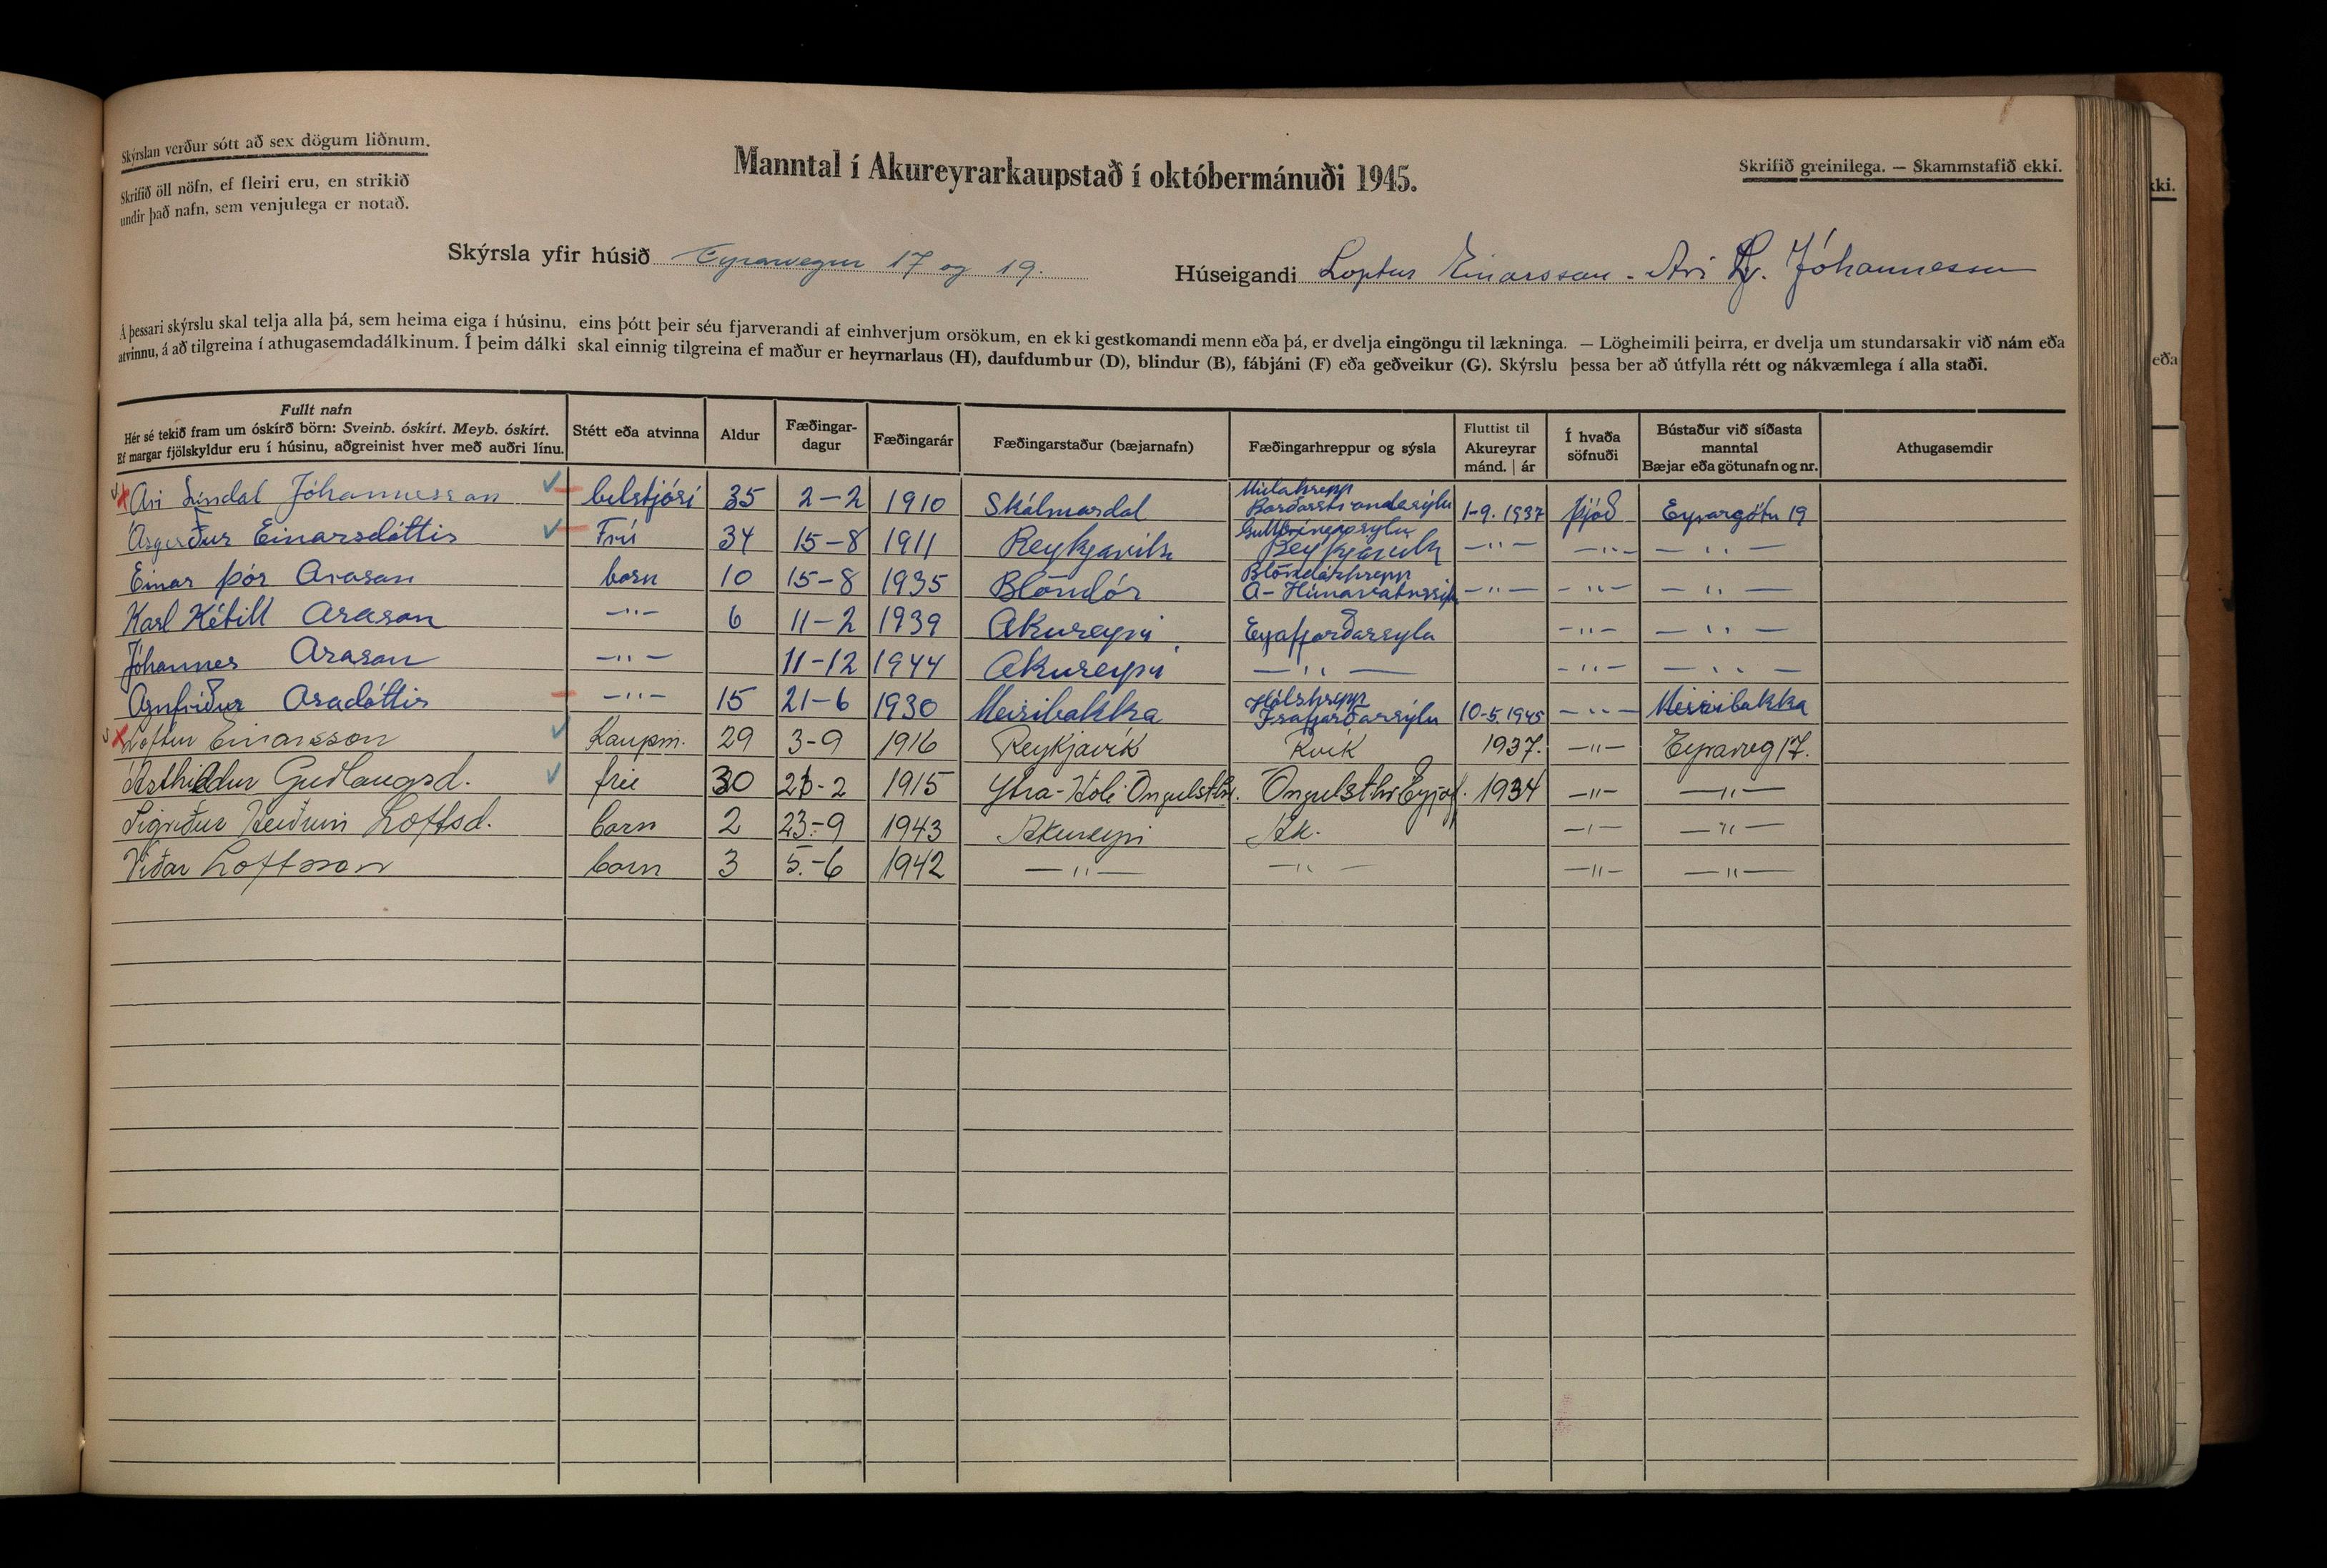 Skýrslan verður sótt að sex dögum liðnum.
Skrifið öll nöfn, ef fleiri eru, en strikið
undir það nafn, sem venjulega er notað.
Manntal í Akureyrarkaupstað í októbermánuði 1945.
Skrifið greinilega. — Skammstafið ekki.
Skýrsla yfir húsið Eyrarvegur 17 og 19.
Húseigandi Loptur Einarsson - Ari L. Jóhannesson
Á þessari skýrslu skal telja alla þá, sem heima eiga í húsinu, eins þótt þeir séu fjarverandi af einhverjum orsökum, en ekki gestkomandi menn eða þá, er dvelja eingöngu til lækninga. — Lögheimili þeirra, er dvelja um stundarsakir við nám eða
atvinnu, á að tilgreina í athugasemdadálkinum. Í þeim dálki skal einnig tilgreina ef maður er heyrnarlaus (H), daufdumbur (D), blindur (B), fábjáni (F) eða geðveikur (G). Skýrslu þessa ber að útfylla rétt og nákvæmlega í alla staði.
Fullt nafn
Hér sé tekið fram um óskírð börn: Sveinb. óskírt. Meyb. óskírt.
Ef margar fjölskyldur eru í húsinu, aðgreinist hver með auðri línu.
Stétt eða atvinna
Aldur
Fæðingar-
dagur
Fæðingarár
Fæðingarstaður (bæjarnafn)
Fæðingarhreppur og sýsla
Fluttist til
Akureyrar
mánd. | ár
Í hvaða
söfnuði
Bústaður við síðasta
manntal
Bæjar eða götunafn og nr.
Athugasemdir
Ari Líndal Jóhannesson belstjóri 35 2-2 1910 Skálmardal Múlahrepp Barðastrandasýlu 1-9. 1937 Þjóð Eyrargötu 19
Ásgerður Einarsdóttir Frú 34 15-8 1911 Reykjavík Gullbringusýlu Reykjavík —"— —"— —"—
Einar Þór Arason barn 10 15-8 1935 Blöndós Blöndóshrepp A-Húnavatnssýlu —"— —"— —"—
Karl Ketill Arason —"— 6 11-2 1939 Akureyri Eyjafjarðarsýla —"— —"—
Jóhannes Arason —"— 11-12 1944 Akureyri —"— —"— —"—
Arnfríður Aradóttir —"— 15 21-6 1930 Meiribakka Hólshrepp Ísafjarðarsýlu 10-5. 1945 —"— Meiribakka
Loftur Einarsson Kaupm. 29 3-9 1916 Reykjavík Rvík 1937. —"— Eyrarveg 17.
Ásthildur Guðlaugsd. frú 30 23-2 1915 Ytra-Hóli Öngulsthr. Öngulsthr Eyjaf. 1934 —"— —"—
Sigríður Heiðrún Loftsd. barn 2 23-9 1943 Akureyri Ak. —"— —"—
Viðar Loftsson barn 3 5.-6 1942 —"— —"— —"— —"—
kki.
eða